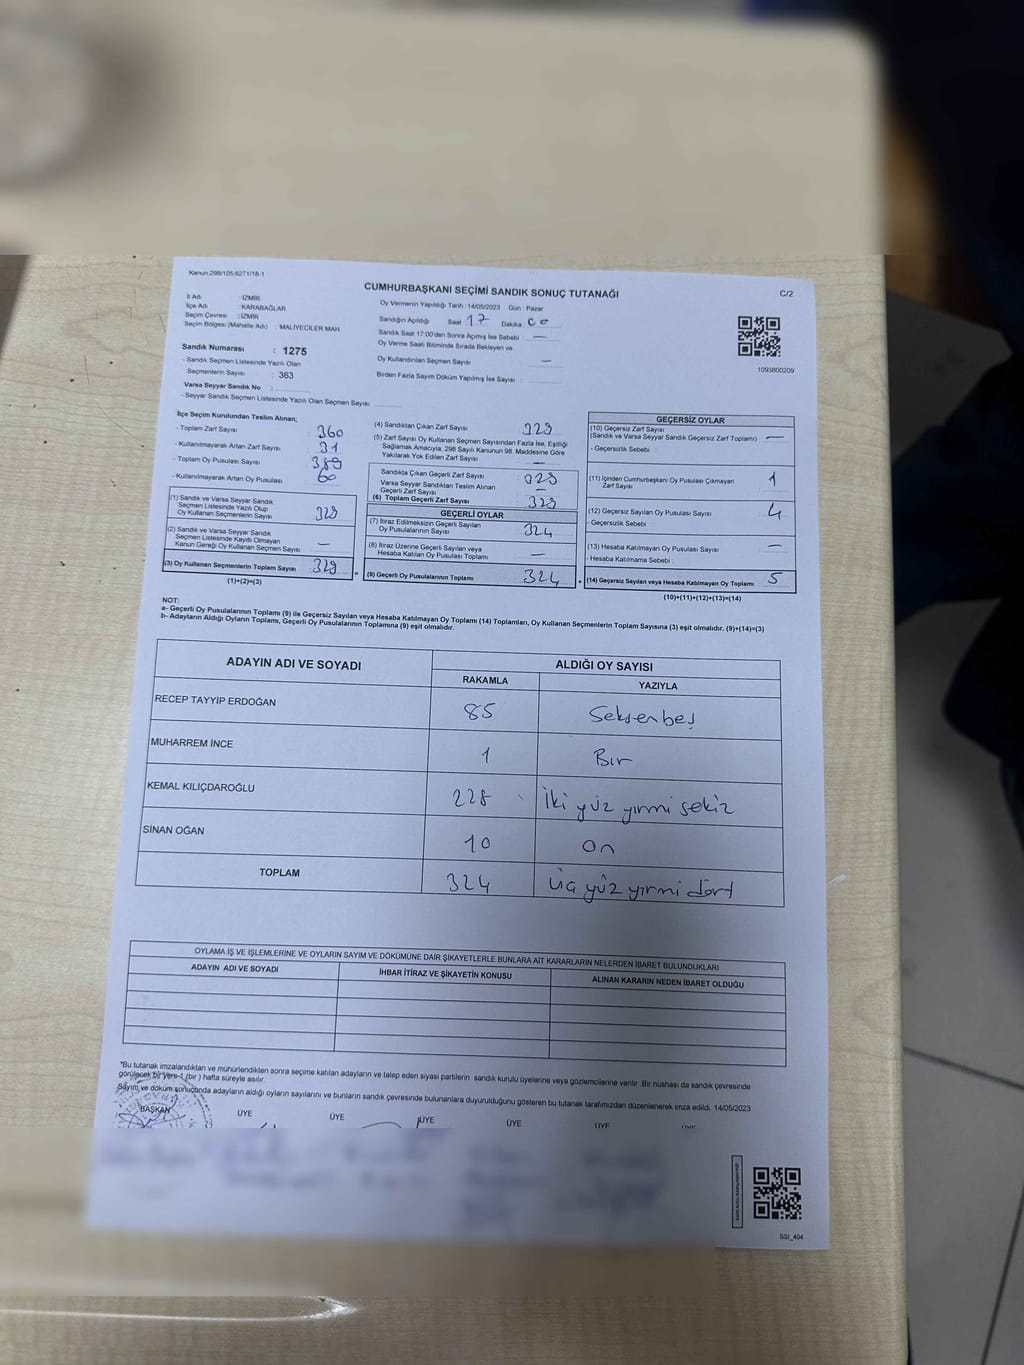 Kanun:298/105;6271/18-1
CUMHURBAŞKANI SEÇİMİ SANDIK SONUÇ TUTANAĞI
C/2
İl Adı : İZMİR
İlçe Adı : KARABAĞLAR
Seçim Çevresi : İZMİR
Seçim Bölgesi (Mahalle Adı) : MALİYECİLER MAH
Sandık Numarası : 1275
- Sandık Seçmen Listesinde Yazılı Olan
Seçmenlerin Sayısı : 363
Varsa Seyyar Sandık No :
- Seyyar Sandık Seçmen Listesinde Yazılı Olan Seçmen Sayısı:
Oy Vermenin Yapıldığı Tarih : 14/05/2023 Gün : Pazar
Sandığın Açıldığı Saat 17 Dakika 00
Sandık Saat 17:00'den Sonra Açılmış İse Sebebi : —
Oy Verme Saati Bitiminde Sırada Bekleyen ve
Oy Kullandırılan Seçmen Sayısı : —
Birden Fazla Sayım Döküm Yapılmış İse Sayısı :
1093800209
İlçe Seçim Kurulundan Teslim Alınan;
- Toplam Zarf Sayısı 360
- Kullanılmayarak Artan Zarf Sayısı 31
- Toplam Oy Pusulası Sayısı 389
- Kullanılmayarak Artan Oy Pusulası 60
(1) Sandık ve Varsa Seyyar Sandık
Seçmen Listesinde Yazılı Olup
Oy Kullanan Seçmenlerin Sayısı 329
(2) Sandık ve Varsa Seyyar Sandık
Seçmen Listesinde Kayıtlı Olmayan
Kanun Gereği Oy Kullanan Seçmen Sayısı —
(3) Oy Kullanan Seçmenlerin Toplam Sayısı 329
(1)+(2)=(3)
(4) Sandıktan Çıkan Zarf Sayısı 329
(5) Zarf Sayısı Oy Kullanan Seçmen Sayısından Fazla İse, Eşitliği
Sağlamak Amacıyla, 298 Sayılı Kanunun 98. Maddesine Göre
Yakılarak Yok Edilen Zarf Sayısı —
Sandıkta Çıkan Geçerli Zarf Sayısı 329
Varsa Seyyar Sandıktan Teslim Alınan
Geçerli Zarf Sayısı —
(6) Toplam Geçerli Zarf Sayısı 329
GEÇERLİ OYLAR
(7) İtiraz Edilmeksizin Geçerli Sayılan
Oy Pusulalarının Sayısı 324
(8) İtiraz Üzerine Geçerli Sayılan veya
Hesaba Katılan Oy Pusulası Toplamı —
(9) Geçerli Oy Pusulalarının Toplamı 324
GEÇERSİZ OYLAR
(10) Geçersiz Zarf Sayısı
(Sandık ve Varsa Seyyar Sandık Geçersiz Zarf Toplamı) : —
- Geçersizlik Sebebi :
(11) İçinden Cumhurbaşkanı Oy Pusulası Çıkmayan
Zarf Sayısı 1
(12) Geçersiz Sayılan Oy Pusulası Sayısı 4
- Geçersizlik Sebebi
(13) Hesaba Katılmayan Oy Pusulası Sayısı —
- Hesaba Katılmama Sebebi :
(14) Geçersiz Sayılan veya Hesaba Katılmayan Oy Toplamı 5
(10)+(11)+(12)+(13)=(14)
NOT:
a- Geçerli Oy Pusulalarının Toplamı (9) ile Geçersiz Sayılan veya Hesaba Katılmayan Oy Toplamı (14) Toplamları, Oy Kullanan Seçmenlerin Toplam Sayısına (3) eşit olmalıdır. (9)+(14)=(3)
b- Adayların Aldığı Oyların Toplamı, Geçerli Oy Pusulalarının Toplamına (9) eşit olmalıdır.
ADAYIN ADI VE SOYADI ALDIĞI OY SAYISI
RAKAMLA YAZIYLA
RECEP TAYYİP ERDOĞAN 85 Seksenbeş
MUHARREM İNCE 1 Bir
KEMAL KILIÇDAROĞLU 228 İki yüz yirmi sekiz
SİNAN OĞAN 10 On
TOPLAM 324 Üç yüz yirmi dört
OYLAMA İŞ VE İŞLEMLERİNE VE OYLARIN SAYIM VE DÖKÜMÜNE DAİR ŞİKAYETLERLE BUNLARA AİT KARARLARIN NELERDEN İBARET BULUNDUKLARI
ADAYIN ADI VE SOYADI İHBAR İTİRAZ VE ŞİKAYETİN KONUSU ALINAN KARARIN NEDEN İBARET OLDUĞU
*Bu tutanak imzalandıktan ve mühürlendikten sonra seçime katılan adayların ve talep eden siyasi partilerin sandık kurulu üyelerine veya gözlemcilerine verilir. Bir nüshası da sandık çevresinde
görülecek bir yere 1 (bir ) hafta süreyle asılır.
Sayım ve döküm sonucunda adayların aldığı oyların sayılarını ve bunların sandık çevresinde bulunanlara duyurulduğunu gösteren bu tutanak tarafımızdan düzenlenerek imza edildi. 14/05/2023
BAŞKAN ÜYE ÜYE ÜYE ÜYE ÜYE ÜYE
SSI_404